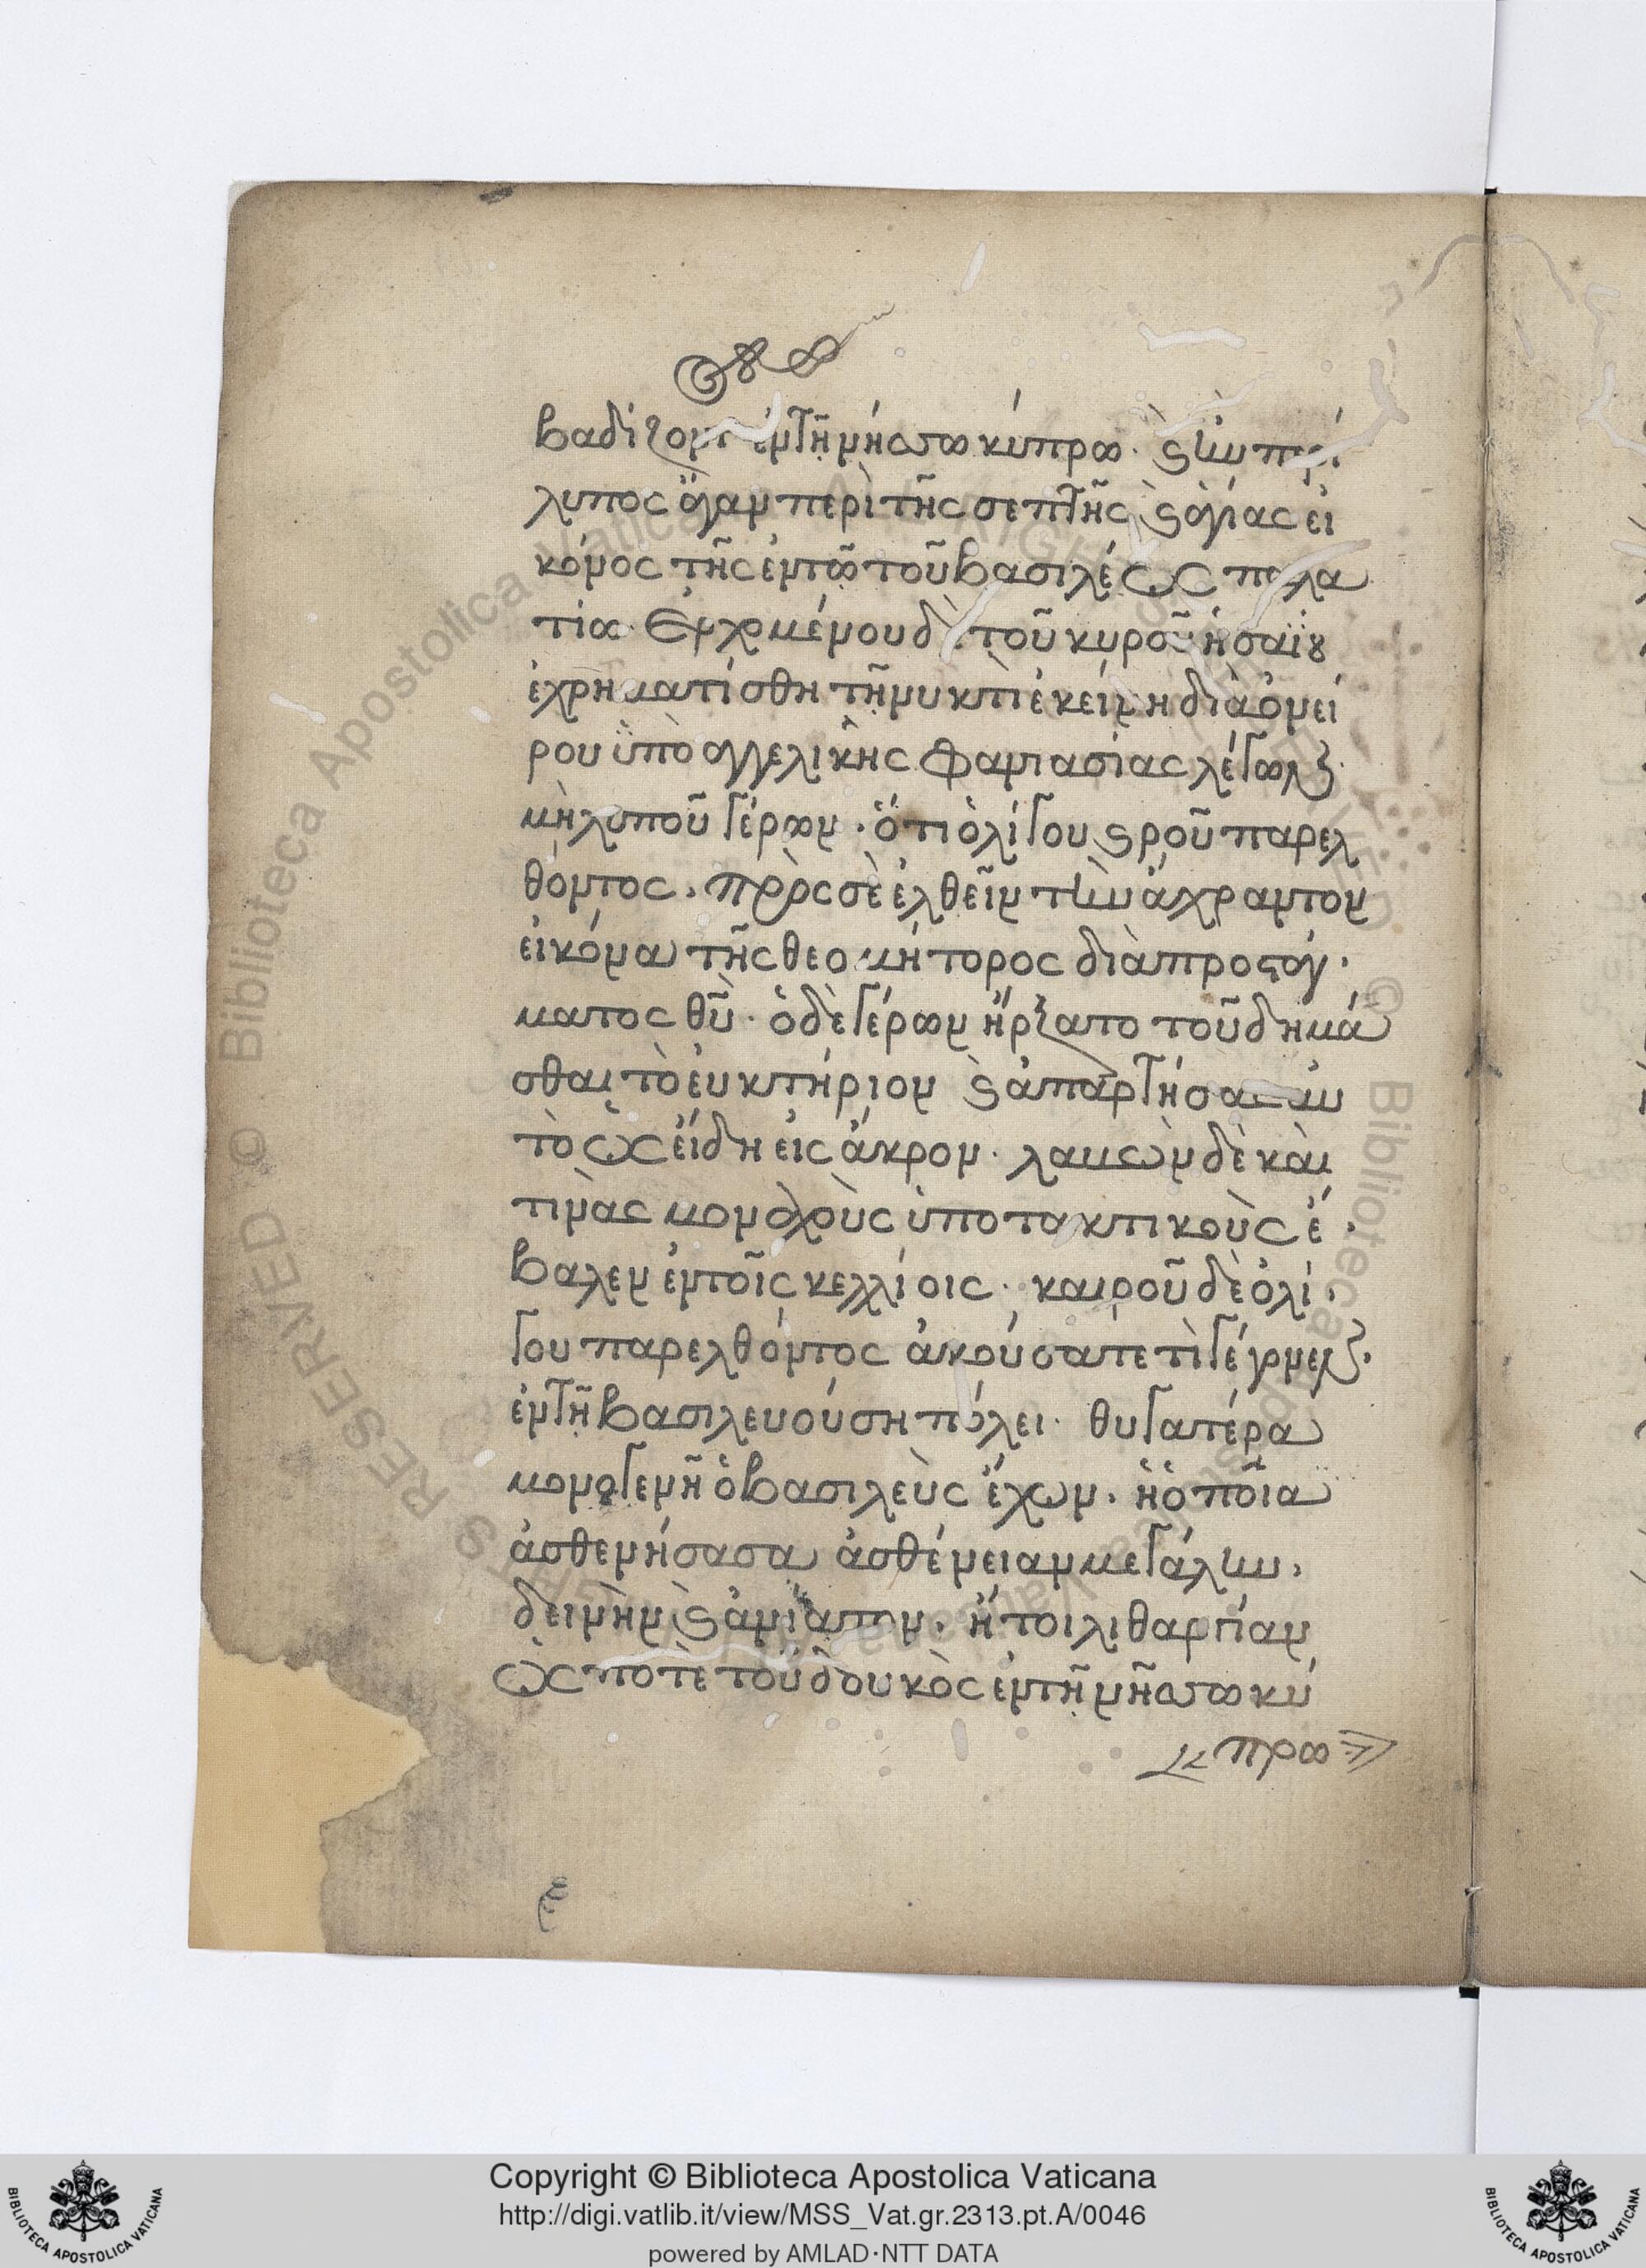 βαδίζοντ ἐν τῇ νήσω κύπρω. ϗ ἦν περί
λυπος ἄγαν περὶ τῆς σεπτῆς ϗ ἁγίας εἰ
κόνος τῆς ἐν τῶ τοῦ βασιλέως παλα
τίω. Ἐρχομένου δὲ τοῦ κυροῦ ἡσαΐου
ἐχρηματίσθη τῇ νυκτὶ ἐκείνη διὰ ὀνεί
ρου ὑπὸ ἀγγελικῆς φαντασίας λέγων
μὴ λυποῦ γέρων. ὅτι ὀλίγου ϗροῦ παρελ
θόντος. πρὸς σὲ ἐλθεῖν τὴν ἄχραντον
εἰκόνα τῆς θεομήτορος διὰ προσταγ.
ματος θῦ. ὁ δὲ γέρων ἤρξατο τοῦ δημά
σθαι τὸ εὐκτήριον ϗ ἀπαρτήσας αὐ
τὸ ὡς εἴδη εἰς ἄκρον. λαβὼν δὲ καὶ
τινὰς μοναχοὺς ὑποτακτικοὺς ἔ.
βαλεν ἐν τοῖς κελλίοις. καιροῦ δὲ ὀλί.
γου παρελθόντος ἀκούσατε τὶ γέγονεν.
ἐν τῇ βασιλευούση πόλει. θυγατέρα
μονογενῆ ὁ βασιλεὺς ἔχων. ἡ ὁποῖα
ἀσθενήσασα ἀσθένειαν μεγάλην.
δεινὴν ϗ ἀνίατον. ἤτοι λιθαργίαν
ὥς ποτε τοῦ δουκὸς ἐν τῇ νῆσω κύ
πρω
Copyright © Biblioteca Apostolica Vaticana
http://digi.vatlib.it/view/MSS_Vat.gr.2313.pt.A/0046
powered by AMLAD·NTT DATA